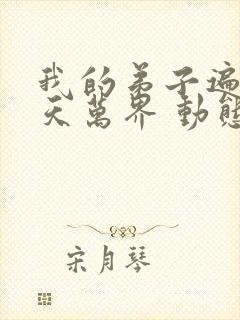 我的弟子遍
天萬界 動態
宋月琴